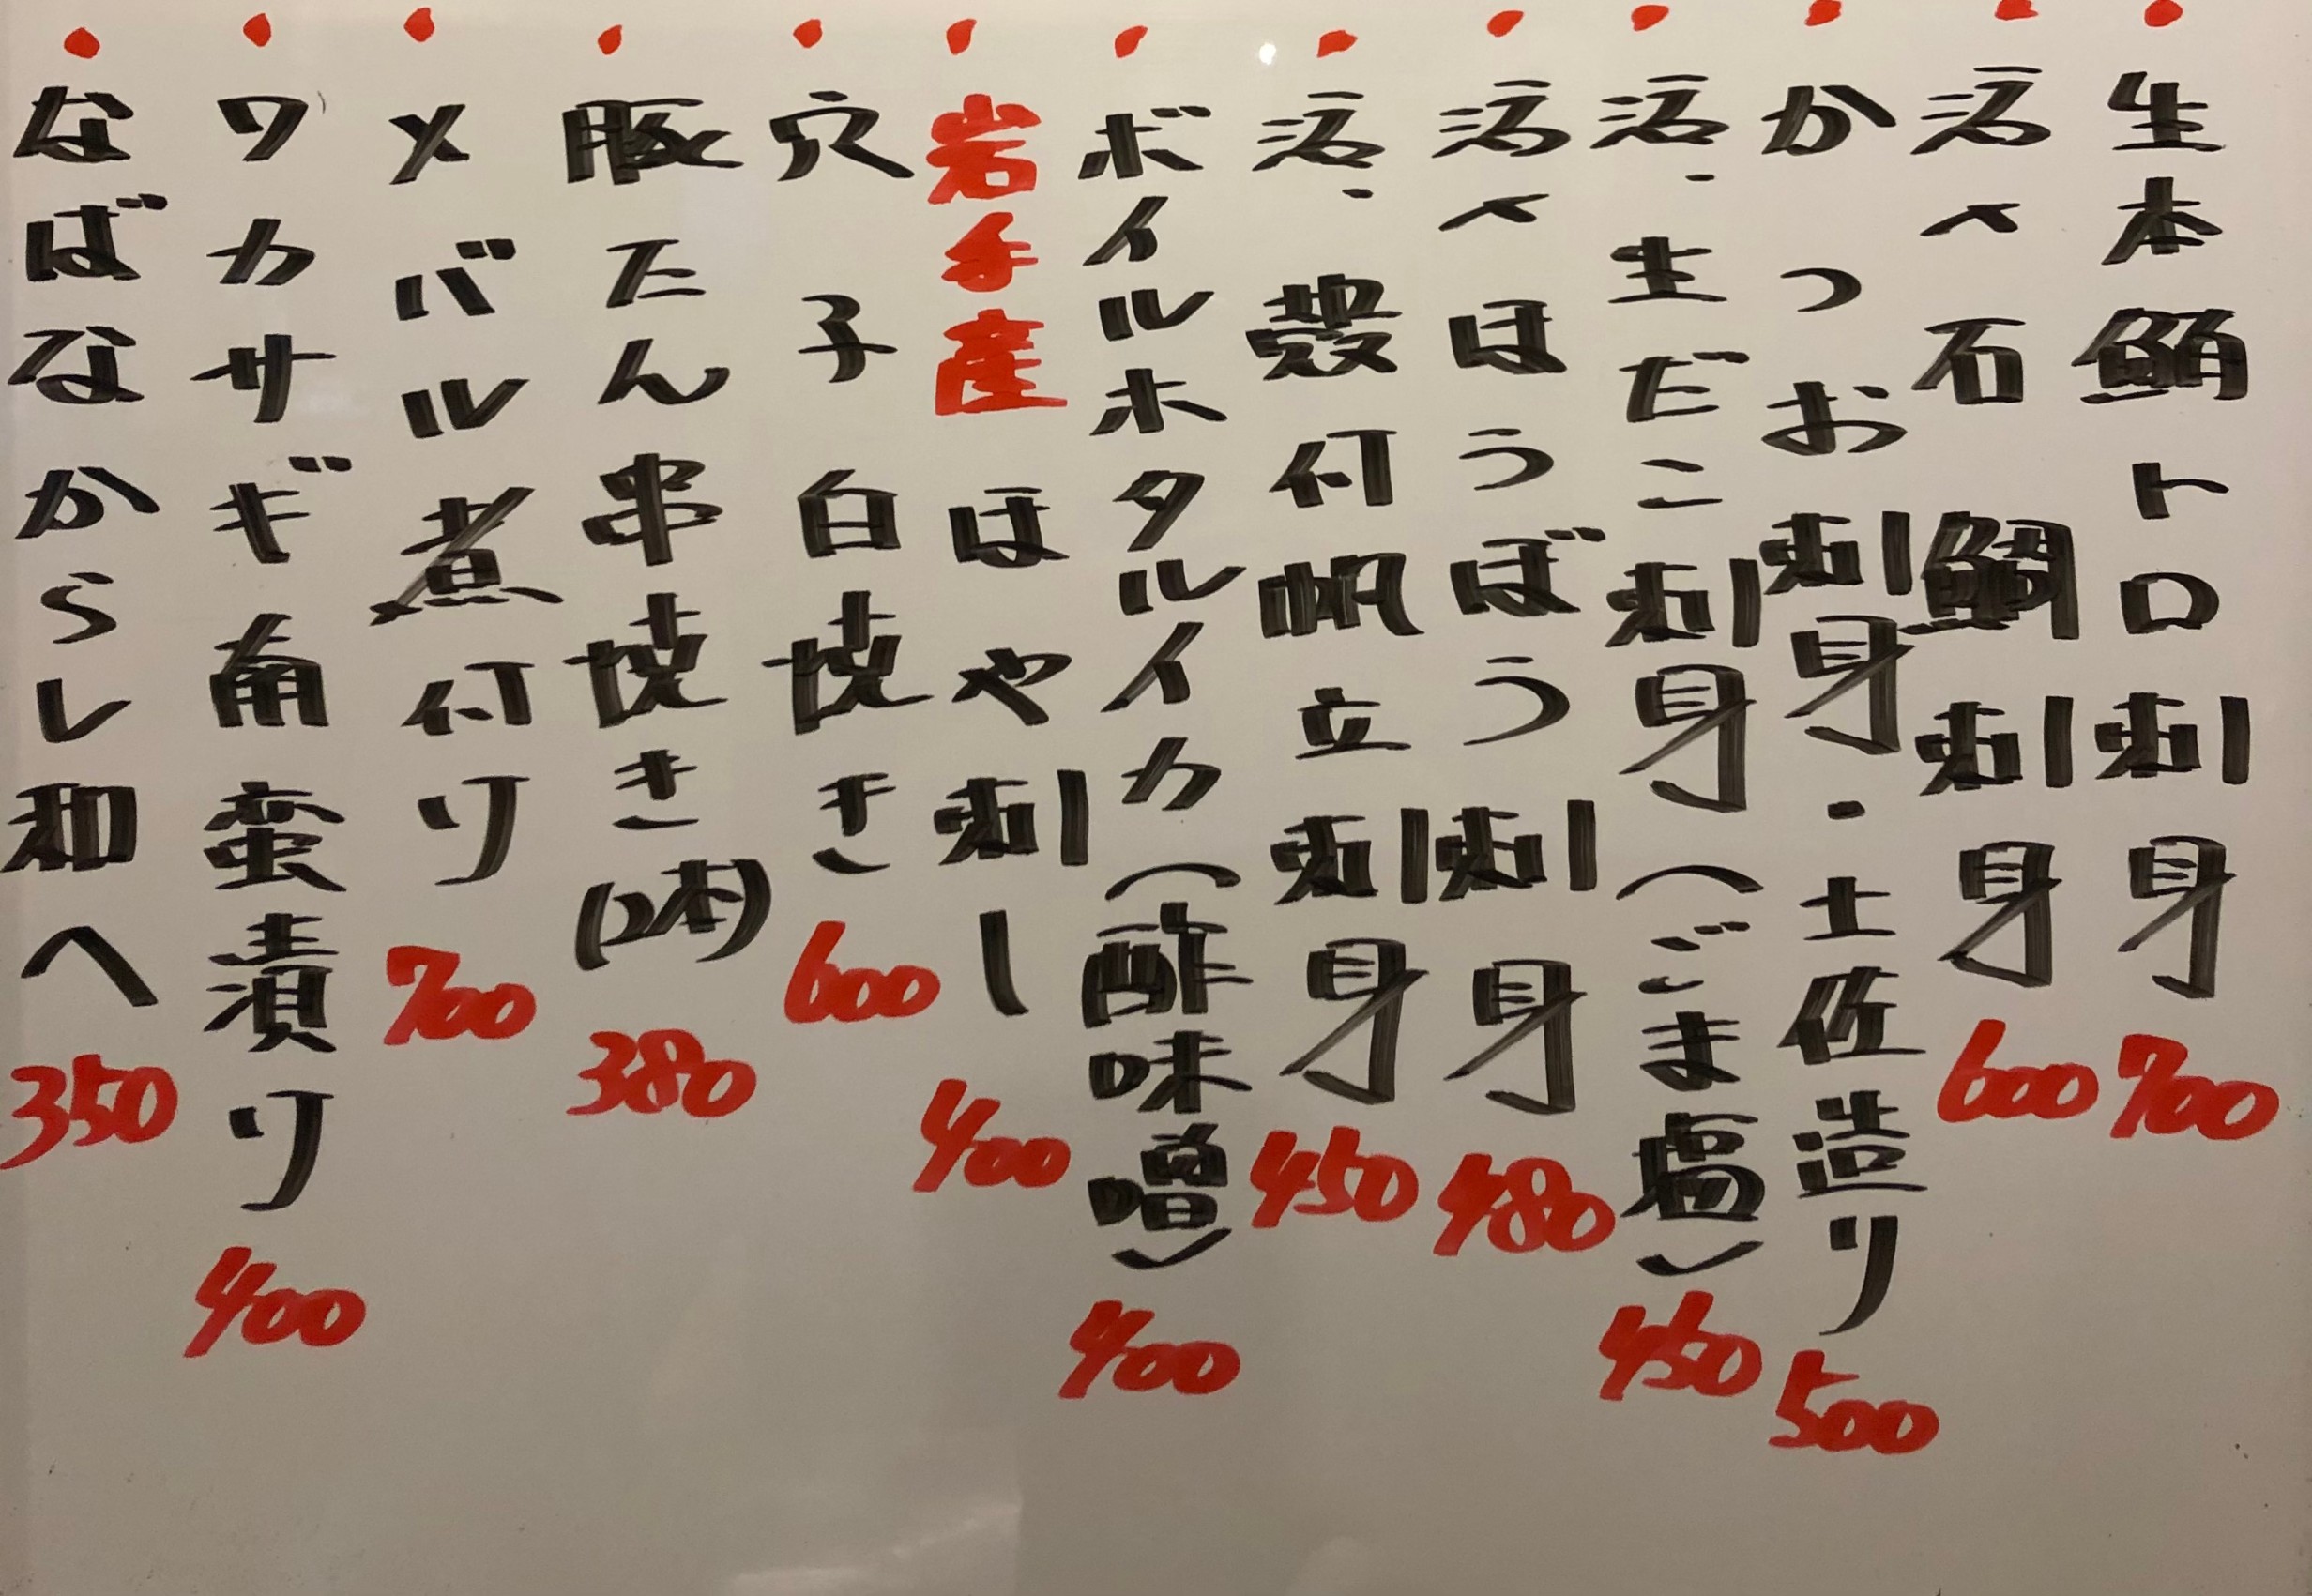 生本鮪トロ刺身 700
活〆石鯛刺身 600
かつお刺身・土佐造り 500
活・生だこ刺身(ごま塩) 450
活〆ほうぼう刺身 480
活・殻付帆立刺身 450
ボイルホタルイカ(酢味噌) 400
岩手産ほや刺し 400
穴子白焼き 600
豚たん串焼き(2本) 380
メバル煮付け 700
ワカサギ南蛮漬け 400
なばなからし和へ 350